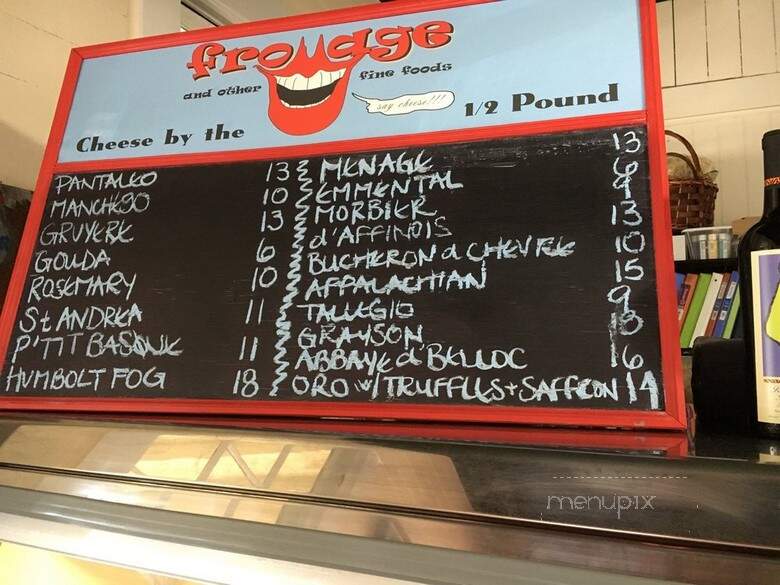 fromage
and other
fine foods
say cheese!!!
Cheese by the
1/2 Pound
PANTALEO 13
MANCHEGO 10
GRUYERE 13
GOUDA 6
ROSEMARY 10
St ANDREA 11
P'TIT BASQUE 11
HUMBOLT FOG 18
MENAGE 13
EMMENTAL 6
MORBIER 9
d'AFFINOIS 13
BUCHERON d CHEVRE 10
APPALACHIAN 15
TALLEGIO 9
GRAYSON
ABBAYE d'BELLOC 16
ORO w/TRUFFLES+SAFFRON 14
menupix